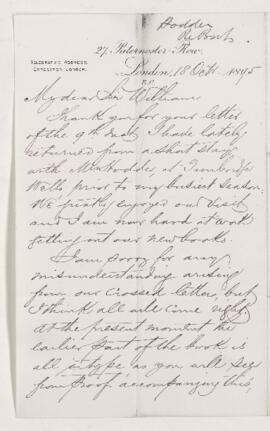 Hodder
27, Paternoster Row,
TELEGRAPHIC ADDRESS,
London, 18 Oct 1895
E.C.
My dear Sir William
Thank you for your letter
of the 9th Inst. I have lately
returned from a short stay
with Mrs Hodder, at Tunbridge
Wells prior to my busiest season.
We greatly enjoyed our visit
and I am now hard at work
getting out our new books.
I am sorry for any
misunderstanding arising
from our crossed letter, but
I think all will come right.
At the present moment the
earlier part of the book is
all in type as you will see
from proof accompanying this,